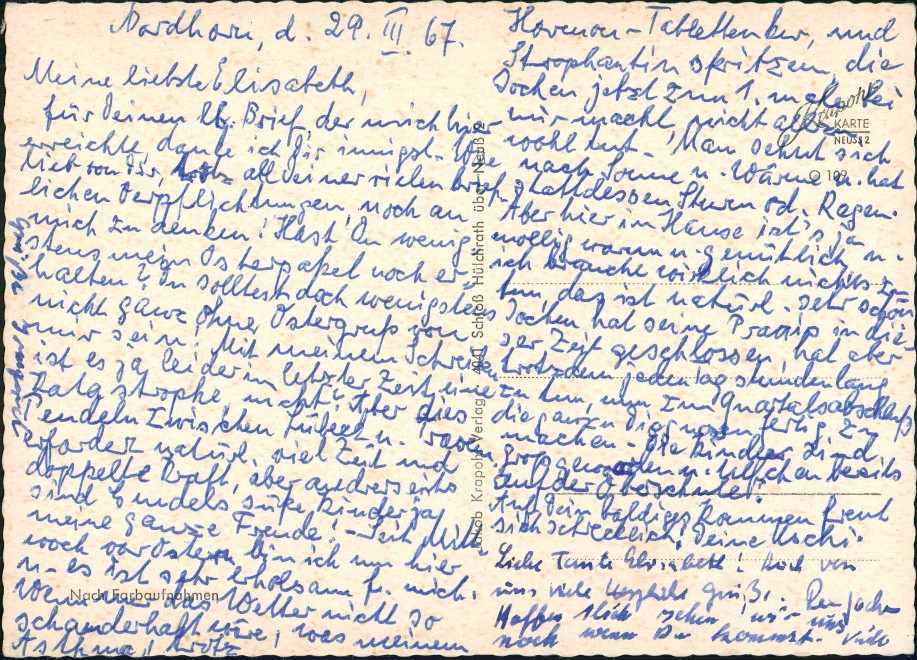 Nordhorn, d. 29. III. 67.
Meine liebste Elisabeth,
für Deinen lb. Brief, der mich hier
erreichte, danke ich Dir innigst. Wie
lieb von Dir, trotz all Deiner vielen brief-
lichen Verpflichtungen, noch an
mich zu denken! Hast Du wenig-
stens mein Osterpaket noch er-
halten? Du solltest doch wenigstens
nicht ganz ohne Ostergruß von
mir sein. Mit meinem Schreiben
ist es ja leider in letzter Zeit eine
Katastrophe, nicht? Aber dies
Pendeln zwischen Lübeck u.
erfordert natürl. viel Zeit und
doppelte Kraft, aber andrerseits
sind Gundels süße Kinder ja
meine ganze Freude! - Seit Mitt-
woch vor Ostern bin ich nun hier
u. es ist sehr erholsam f. mich.
Wenn nur das Wetter nicht so
schauderhaft wäre, was meinem
Asthma, trotz
Hormon-Tablettenkur, und
Strophantinspritzen, die
Jochen jetzt zum 1. male bei
mir macht, nicht allzu
wohl tut. Man sehnt sich
nach Sonne u. Wärme u. hat
stattdessen Sturm od. Regen.
Aber hier im Hause ist's ja
mollig warm u. gemütlich u.
ich brauche wirklich nichts zu
tun, das ist natürl. sehr schön.
Jochen hat seine Praxis in die-
ser Zeit geschlossen, hat aber
trotzdem jeden Tag stundenlang
zu tun, um zum Quartalsabschluß
die ganzen Diagnosen fertig zu
machen. - Die Kinder sind
groß geworden u. bereits
auf der Oberschule!
Auf Dein baldiges Kommen freut
sich schrecklich Deine Uschi.
Liebe Tante Elisabeth! Auch von
uns viele herzliche Grüße. Dein Jochen
Hoffentlich sehen wir uns
noch wenn Du kommst. viele
Krapohl
KARTE
NEUSS 2
O 109
Jakob Krapohl-Verlag, 4041 Schloß Hülchrath über Neuß 2
Nach Farbaufnahmen